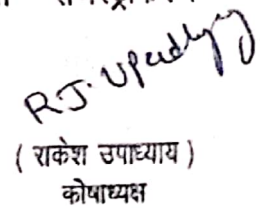 R.J. Upadhyay
( राकेश उपाध्याय )
कोषाध्यक्ष